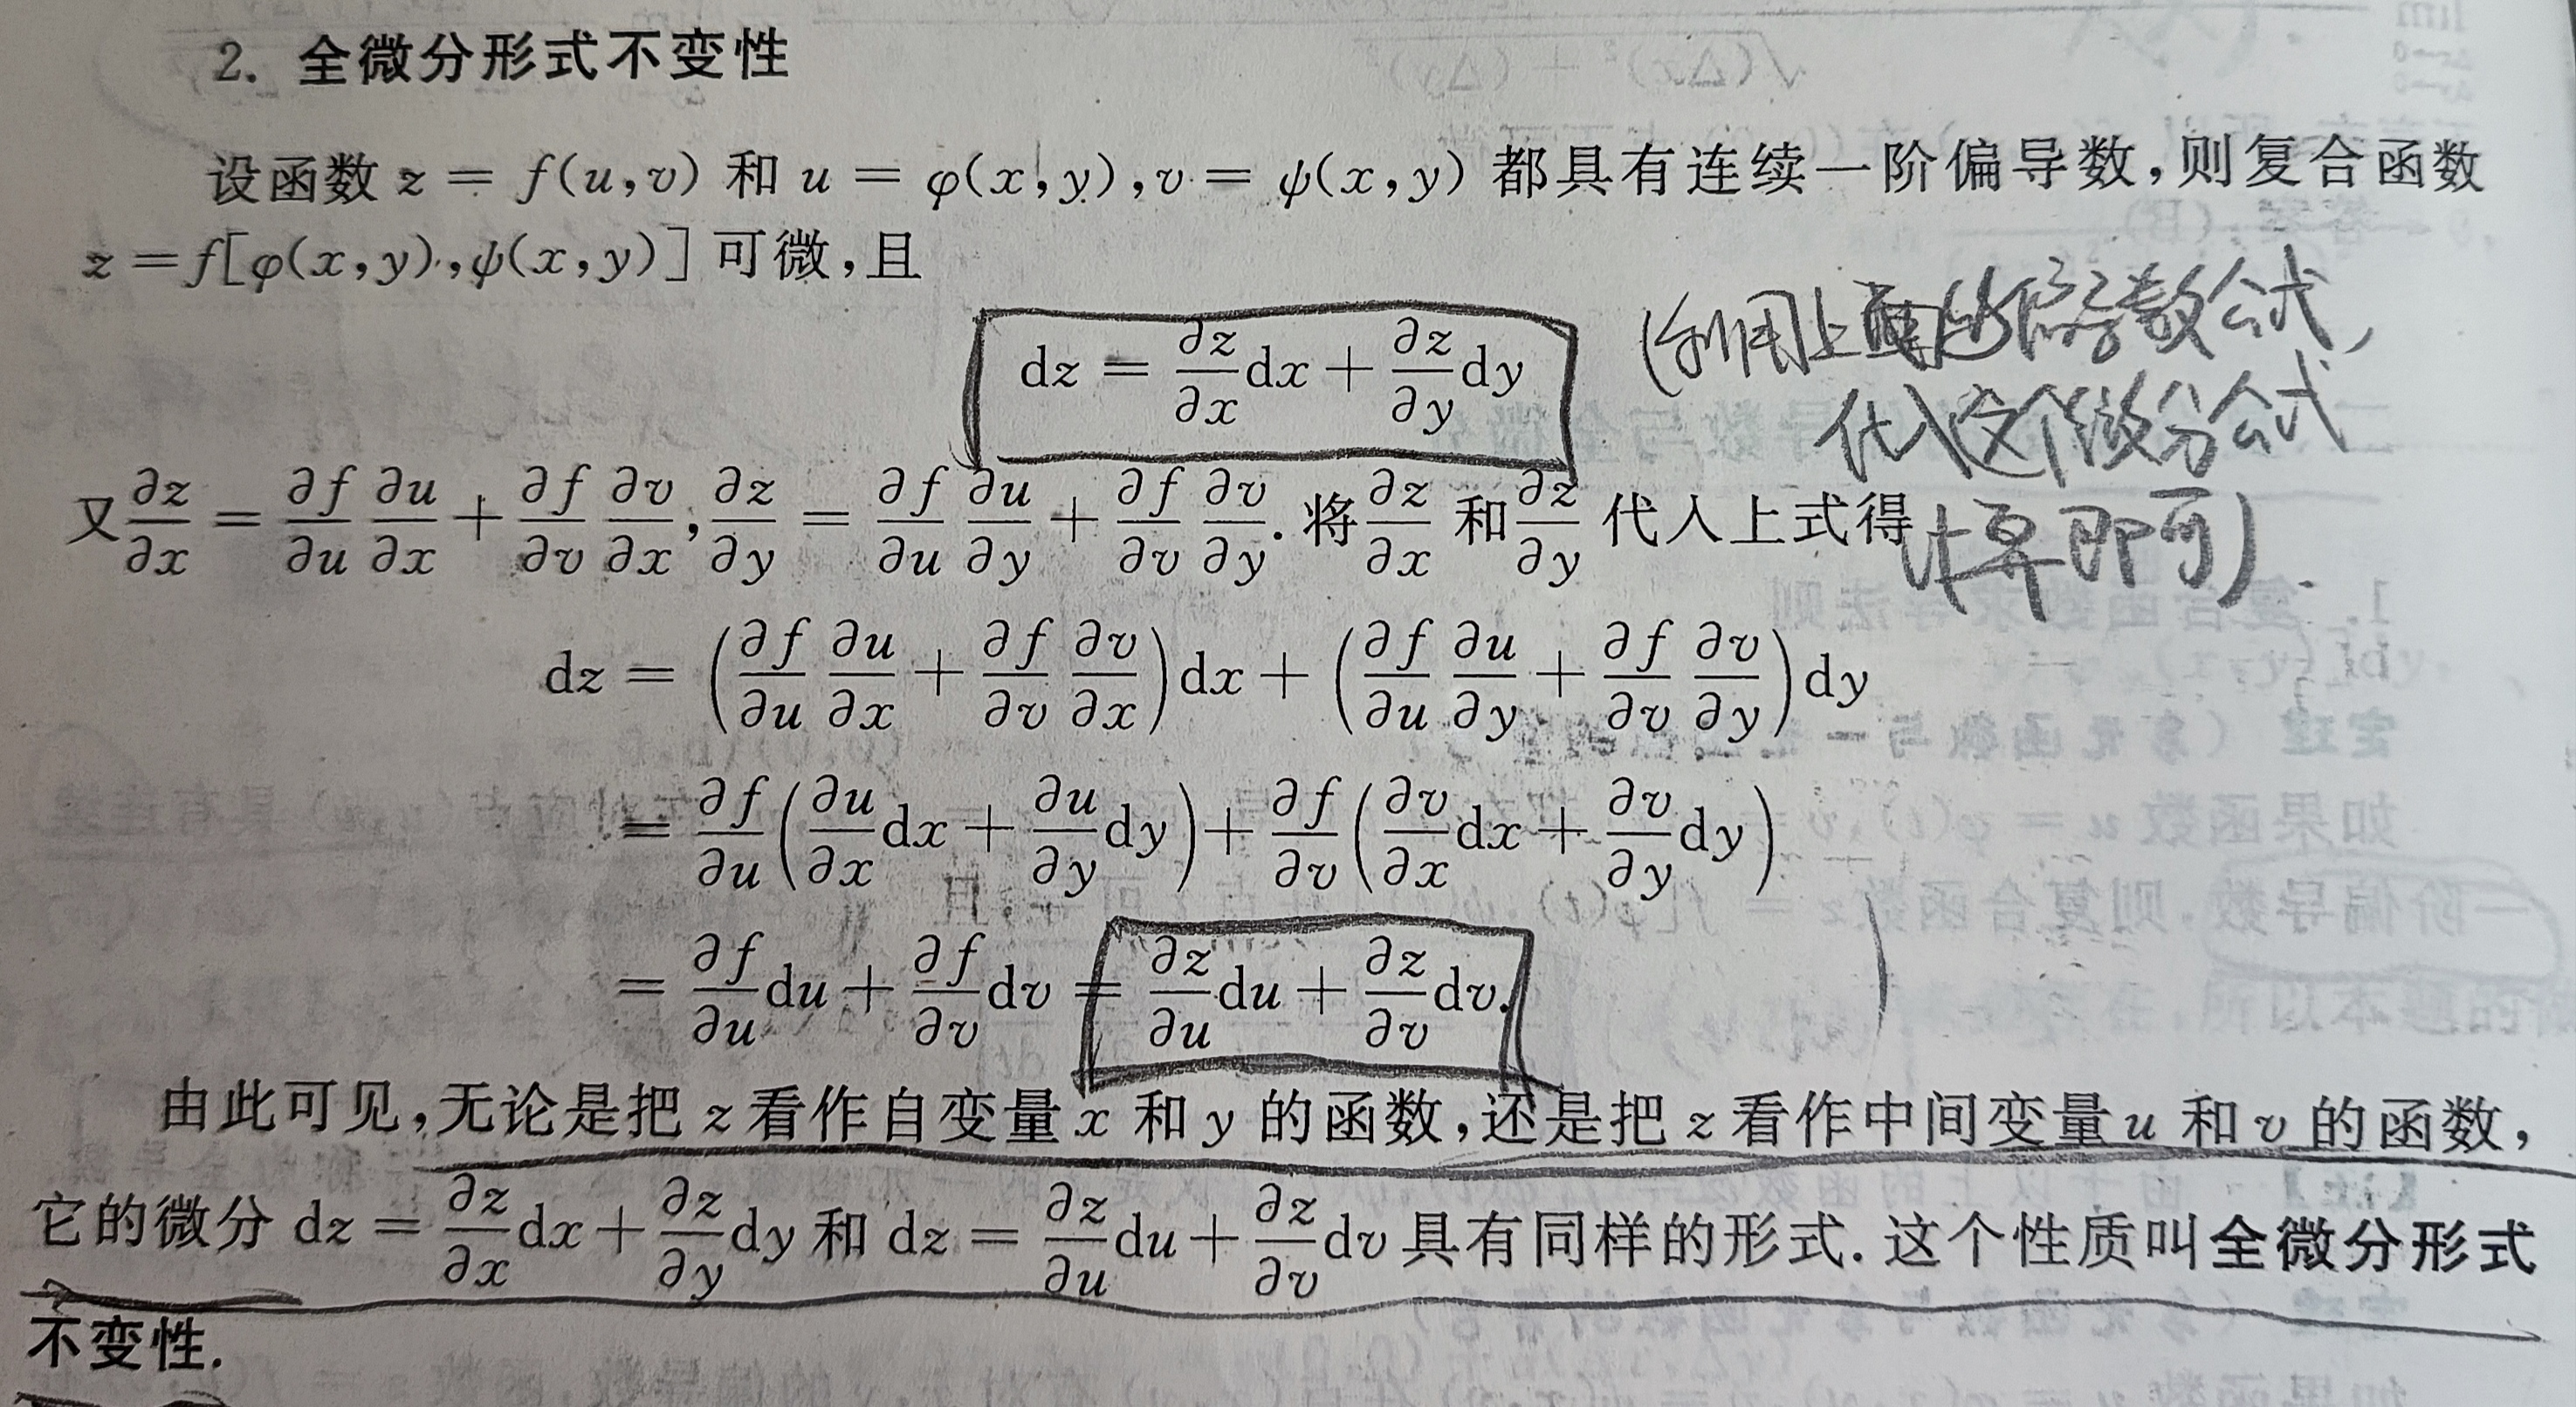 2. 全微分形式不变性
设函数 z = f(u,v) 和 u = φ(x,y),v = ψ(x,y) 都具有连续一阶偏导数,则复合函数
z = f[φ(x,y),ψ(x,y)] 可微,且
(利用上面的偏导数公式,
dz = ∂z/∂x dx + ∂z/∂y dy
代入这个微分公式
又 ∂z/∂x = ∂f/∂u ∂u/∂x + ∂f/∂v ∂v/∂x, ∂z/∂y = ∂f/∂u ∂u/∂y + ∂f/∂v ∂v/∂y. 将 ∂z/∂x 和 ∂z/∂y 代入上式得
计算即可)
dz = (∂f/∂u ∂u/∂x + ∂f/∂v ∂v/∂x)dx + (∂f/∂u ∂u/∂y + ∂f/∂v ∂v/∂y)dy
= ∂f/∂u (∂u/∂x dx + ∂u/∂y dy) + ∂f/∂v (∂v/∂x dx + ∂v/∂y dy)
= ∂f/∂u du + ∂f/∂v dv = ∂z/∂u du + ∂z/∂v dv.
由此可见,无论是把 z 看作自变量 x 和 y 的函数,还是把 z 看作中间变量 u 和 v 的函数,
它的微分 dz = ∂z/∂x dx + ∂z/∂y dy 和 dz = ∂z/∂u du + ∂z/∂v dv 具有同样的形式. 这个性质叫全微分形式
不变性.